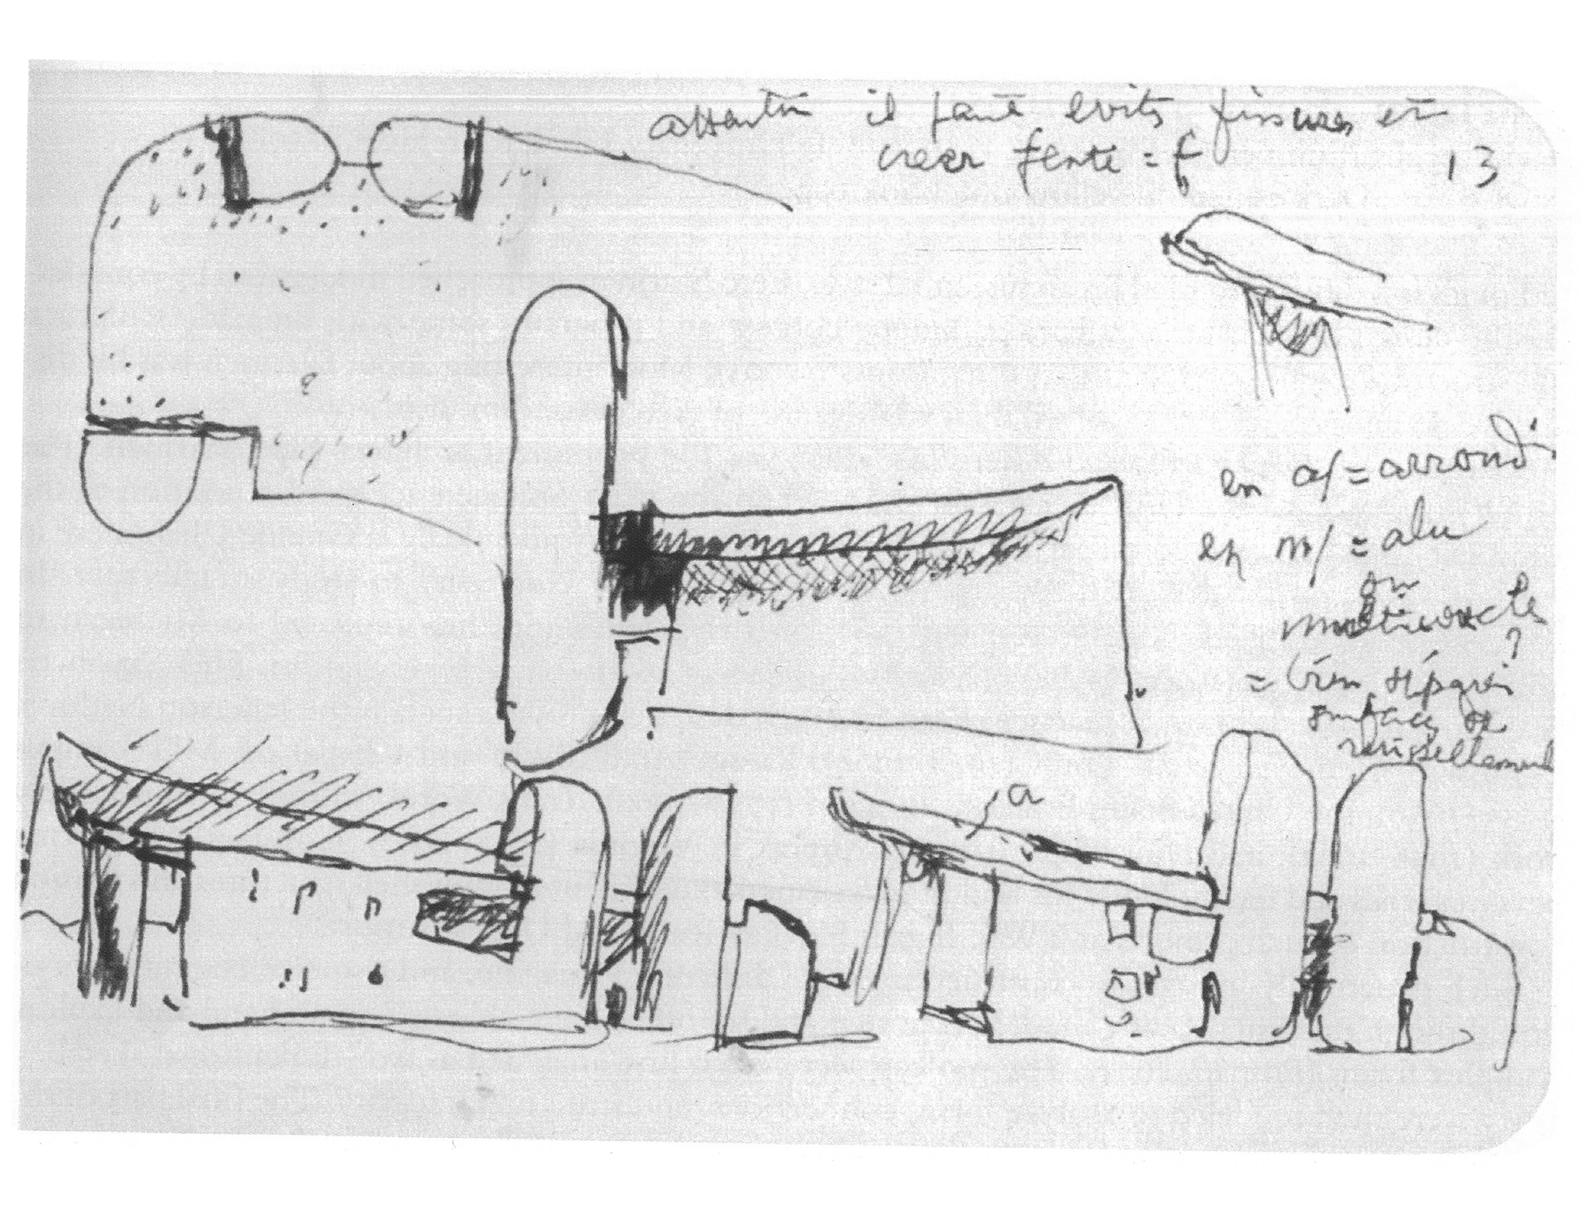 attention il faut eviter fissures et
creer fente = f
13
en a/ = arrondi
en m/ = alu
ou
multicouche
?
= bien séparer
surfaces de
ruissellement
a